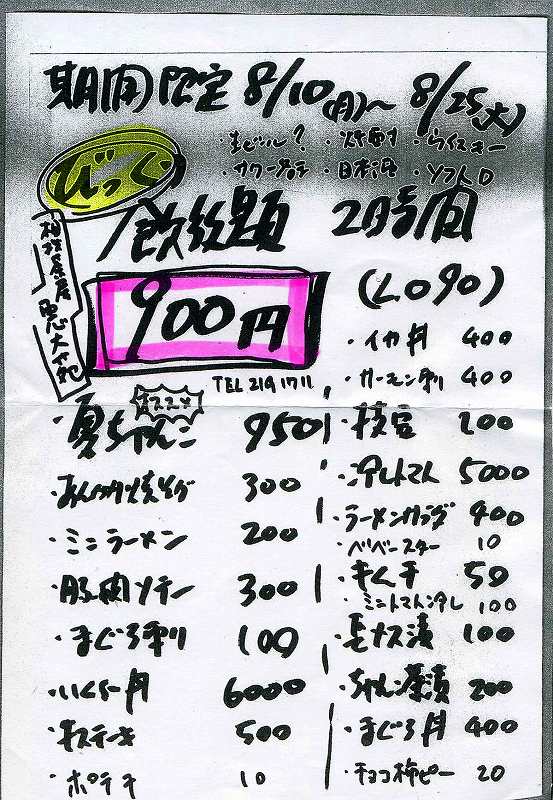 期間限定 8/10(月)〜8/25(火)
・生ビール?・焼酎・ウイスキー
・サワー各種・日本酒・ソフトD
びっくり
飲放題 2時間
相撲茶屋
恵大苑
900円
(LO90)
TEL 219 1711
・イカ丼 400
・サーモン刺 400
オススメ
・夏ちゃんこ 950
・枝豆 200
あんかけ焼そば 300
・冷しトマト 5000
・ミニラーメン 200
・ラーメンサラダ 400
・ベベースター 10
・豚肉ソテー 300
・キムチ 50
・ミニトマトンタレ 100
・まぐろ刺 100
・長ナス漬 100
・いくら丼 6000
・ちゃんこ茶漬 200
・牛ステーキ 500
・まぐろ丼 400
・ポテチ 10
・チョコ柿ピー 20